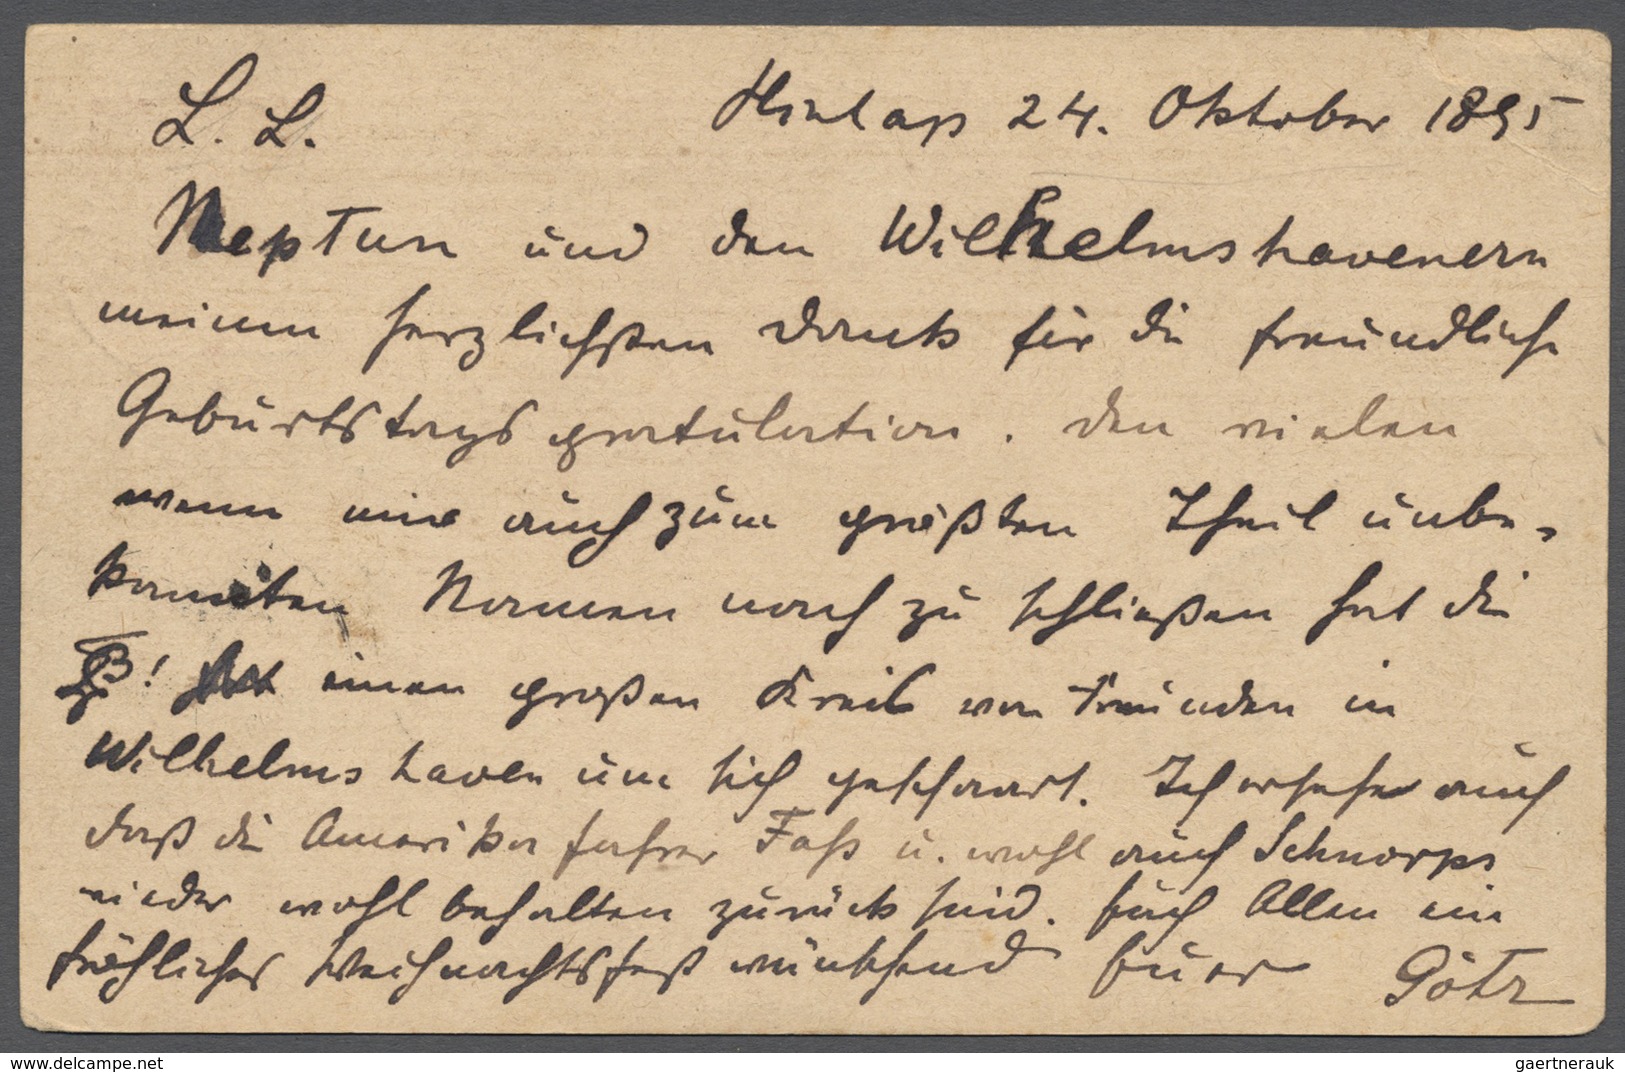 L. L.
24. Oktober 1895
Neptun und den Wilhelmshavenern
meinen herzlichsten Dank für die freundliche
Geburtstagsgratulation. Den vielen
wenn mir auch zum größten Theil unbe-
kannten Namen nach zu schließen hat die
! einen großen Kreis von Freunden in
Wilhelmshaven um sich geschaart. Ich ersehe auch
daß die Amerikafahrer Fass u. wohl auch Schnorps
wieder wohl behalten zurück sind. Euch Allen ein
fröhliches Weihnachtsfest wünschend Euer Götz
www.delcampe.net
gaertnerauk